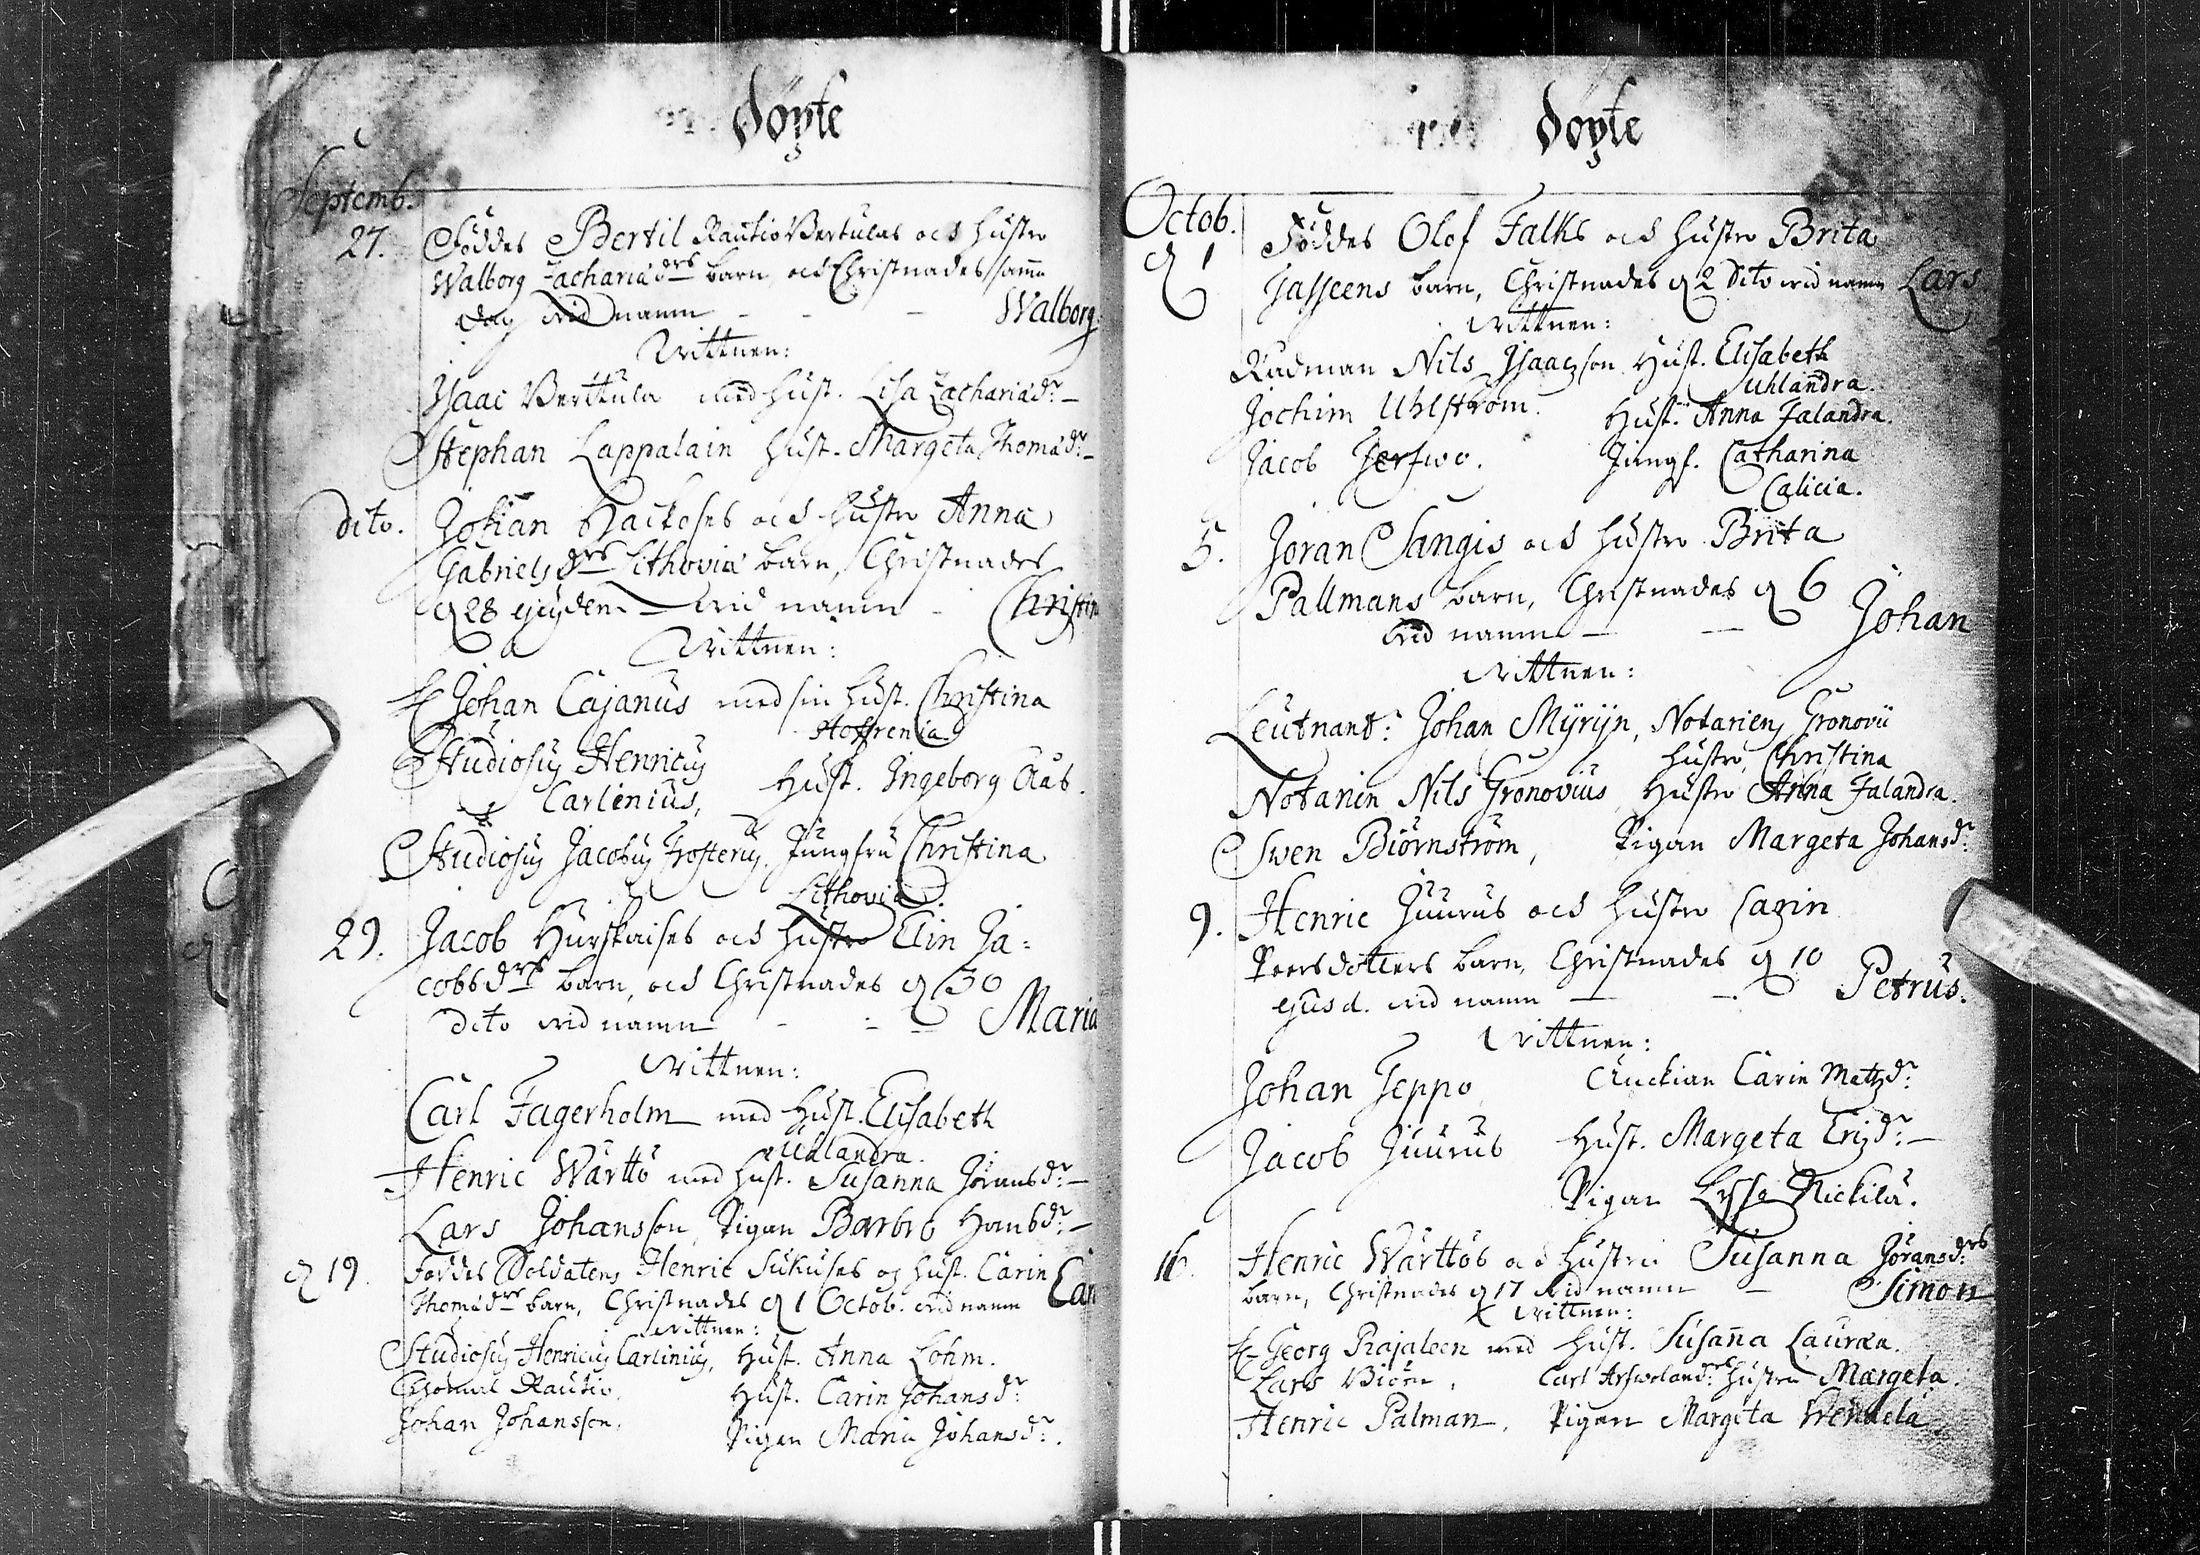 Döpte
Septemb.
27. Föddes Bertil Rautio Vertulas och hustro
Walborg Zachariædrs barn, och Christnades samma
dag vid namn - - - Walborg
Wittnen:
Isaac Verttula med hust. Lisa Zachariædr.
Stephan Lappalain hust. Margeta Thomædr.
dito. Johan Hackoses och hustro Anna
Gabrielsdrs Lithoviæ barn, Christnades
d 28 ejusdem vid namn - Christin
Wittnen:
H Johan Cajanus med sin hust. Christina
Hoffrenia.
Studiosus Henricus hust. Ingeborg Clas.
Carlenius,
Studiosus Jacobus Frosterus, Jungfru Christina
Lithovia.
29. Jacob Hurskaises och hustro Elin Ja=
cobsdrs barn, och Christnades d 30
dito vid namn - - - Maria
Wittnen:
Carl Fagerholm med hust. Elisabeth
Uhlandra.
Henric Wärttö med hust. Susanna Jöransdr.
Lars Johansson, Pigan Barbro Hansdr.
d 19. Föddes Soldatens Henric Sukuses og hust. Carin
Thomædrs barn, Christnades d 1 Octob. vid namn Car
Wittnen:
Studiosus Henricus Carlinius, Hust. Anna Lohm.
Rautio, Hust. Carin Johansdr.
Johan Johansson, Pigan Maria Johansdr.
Döpte
Octob.
d 1 Föddes Olof Falks och hustro Brita
Jasseens barn, Christnades d 2 dito vid namn Lars
Wittnen:
Rådman Nils Isaacsson Hust. Elisabeth
Uhlandra.
Jochim Uhlström. Hust. Anna Falandra.
Jacob Jerfwo. Jungf. Catharina
Calicia.
5. Jöran Sangis och hustro Brita
Pallmans barn, Christnades d 6
vid namn - - Johan
Wittnen:
Leutnant: Johan Myrijn, Notariens Gronovii
hustro, Christina
Notarien Nils Gronovius, Hustro Anna Falandra.
Swen Biörnström, Pigan Margeta Johansdr.
9. Henric Juurus och hustro Carin
Peersdotters barn, Christnades d 10
ejusd. vid namn - - Petrus.
Wittnen:
Johan Jeppo, Änckian Carin Matzdr.
Jacob Juurus Hust. Margeta Erizdr.
Pigan Nickilä.
16. Henric Wärttös och hustru Susanna Jöransdrs
barn, Christnades d 17 vid namn - Simon
Wittnen:
H Georg Pajaleen med hust. Susanna Lauræa.
Lars Biörn, Carl hustru Margeta.
Henric Palman, Pigan Margeta Wendela